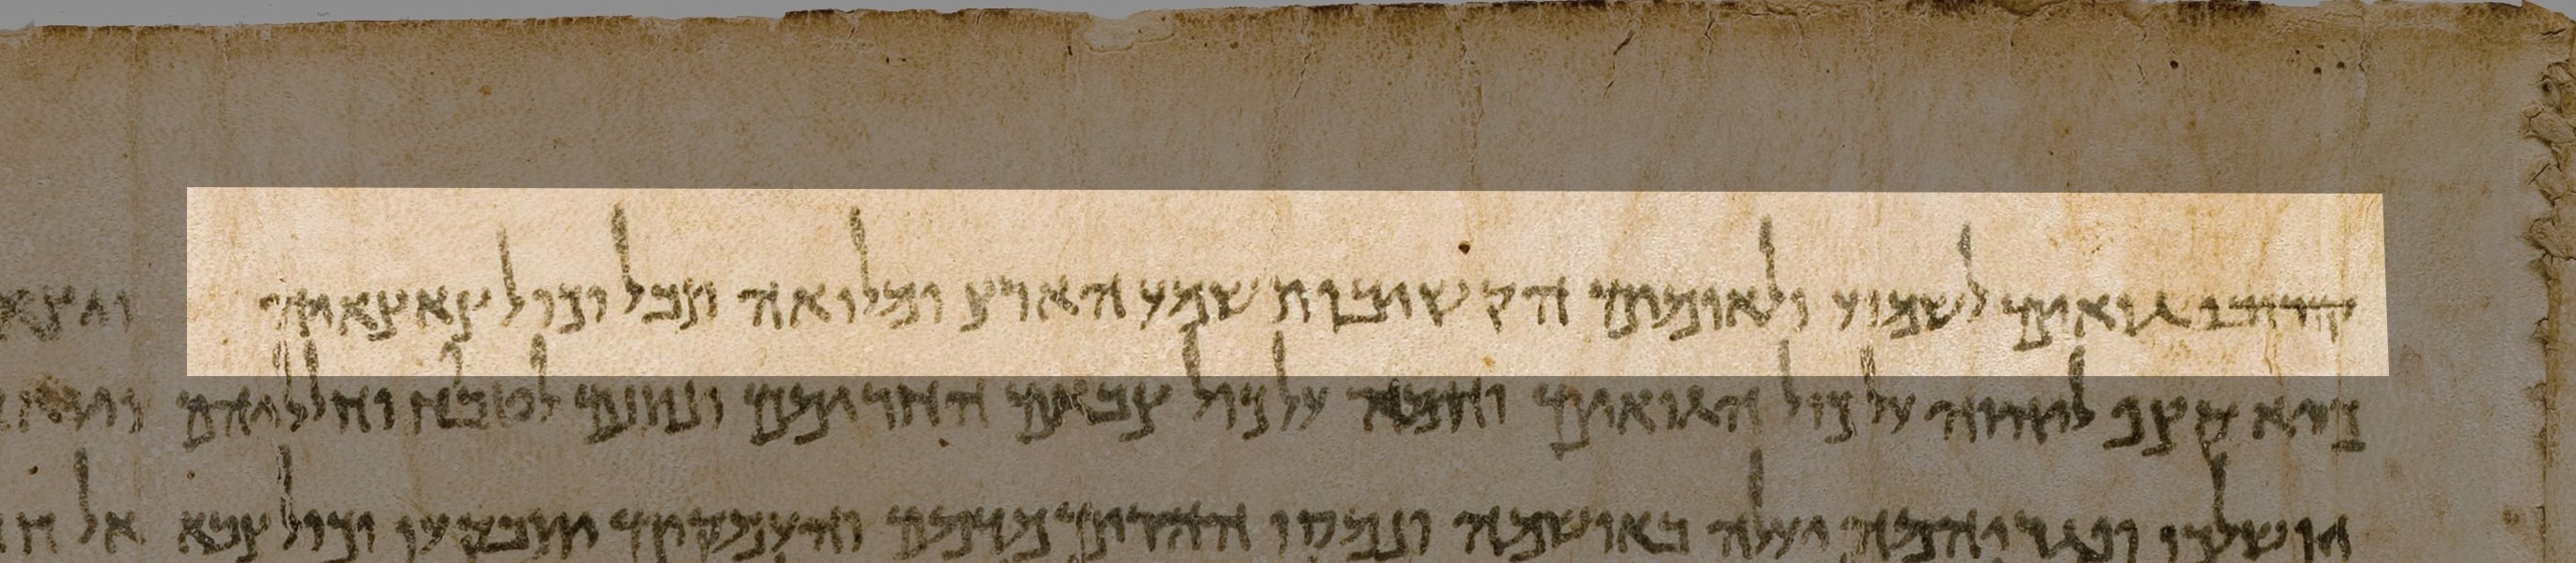 קרובו גואים לשמוע ולאומים הקשיבו תשמע הארץ ומלואה תבל וכול צאצאיה
כיא קצף ליהוה על כול הגואים וחמה על כול צבאם החרימם ונותנם לטבח וחלליהם
יושלכו ופגריהמה יעלה באושמה ונמסו ההרים מדמם והעמקים יתבקעו וכול צבא